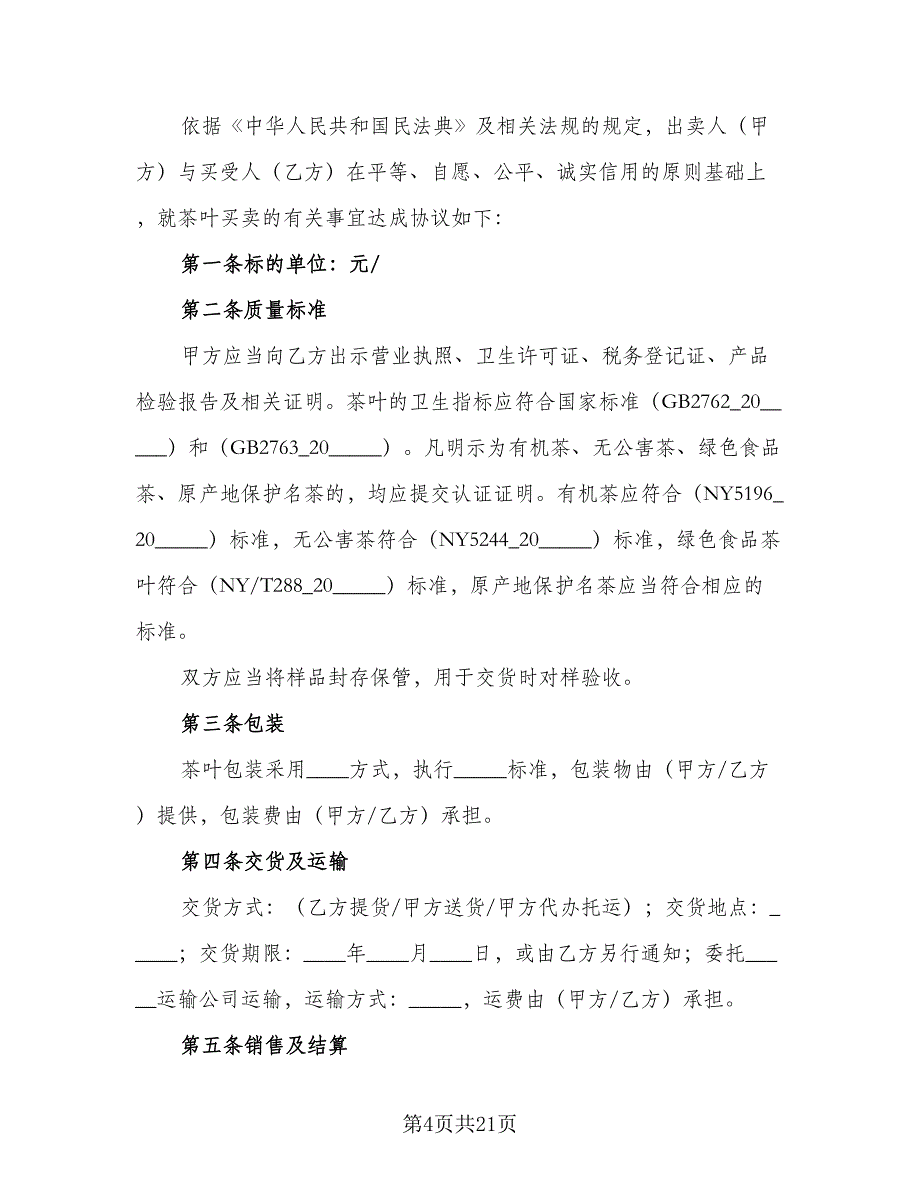 依据《中华人民共和国民法典》及相关法规的规定，出卖人（甲
方）与买受人（乙方）在平等、自愿、公平、诚实信用的原则基础上
，就茶叶买卖的有关事宜达成协议如下：
第一条标的单位：元/
第二条质量标准
甲方应当向乙方出示营业执照、卫生许可证、税务登记证、产品
检验报告及相关证明。茶叶的卫生指标应符合国家标准（GB2762_20__
___）和（GB2763_20_____）。凡明示为有机茶、无公害茶、绿色食品
茶、原产地保护名茶的，均应提交认证证明。有机茶应符合（NY5196_
20_____）标准，无公害茶符合（NY5244_20_____）标准，绿色食品茶
叶符合（NY/T288_20_____）标准，原产地保护名茶应当符合相应的
标准。
双方应当将样品封存保管，用于交货时对样验收。
第三条包装
茶叶包装采用____方式，执行_____标准，包装物由（甲方/乙方
）提供，包装费由（甲方/乙方）承担。
第四条交货及运输
交货方式：（乙方提货/甲方送货/甲方代办托运）；交货地点：_
____；交货期限：____年____月____日，或由乙方另行通知；委托___
__运输公司运输，运输方式：_____，运费由（甲方/乙方）承担。
第五条销售及结算
第4页共21页